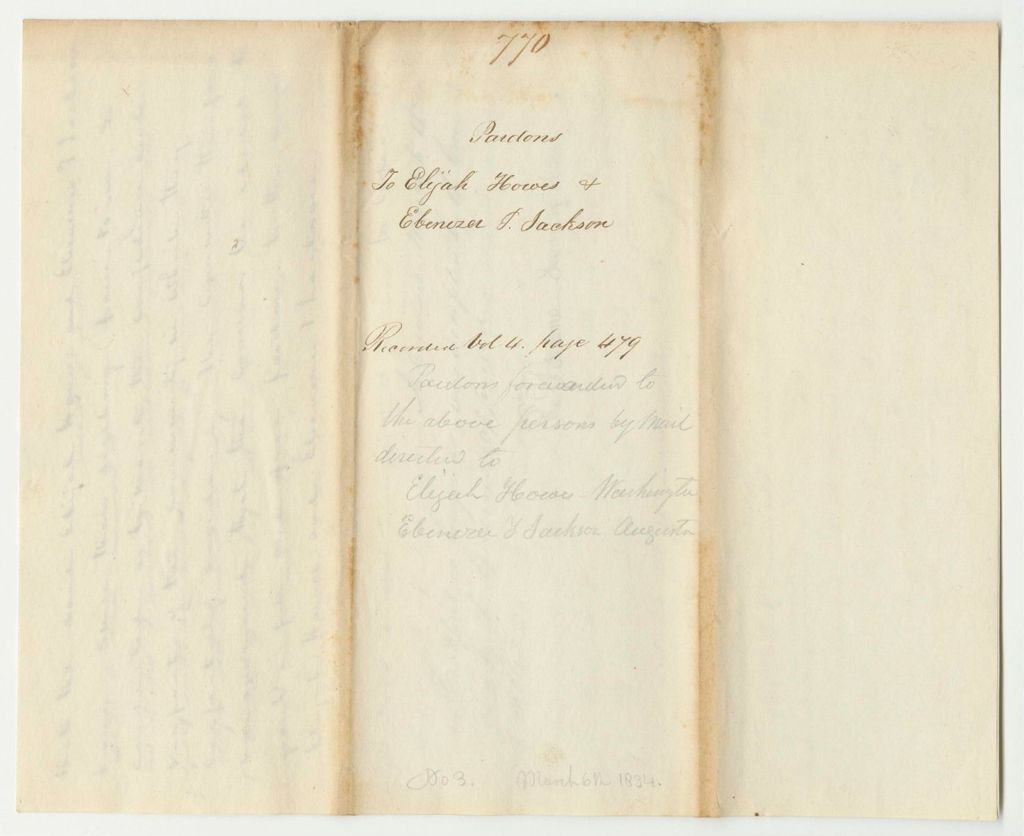 770
Pardons
To Elijah Howes &
Ebenezer T. Jackson
Recorded Vol 4. page 479
Pardons forwarded to
the above persons by Mail
directed to
Elijah Howes Washington
Ebenezer T Jackson Augusta
No 3. March 6th 1834.